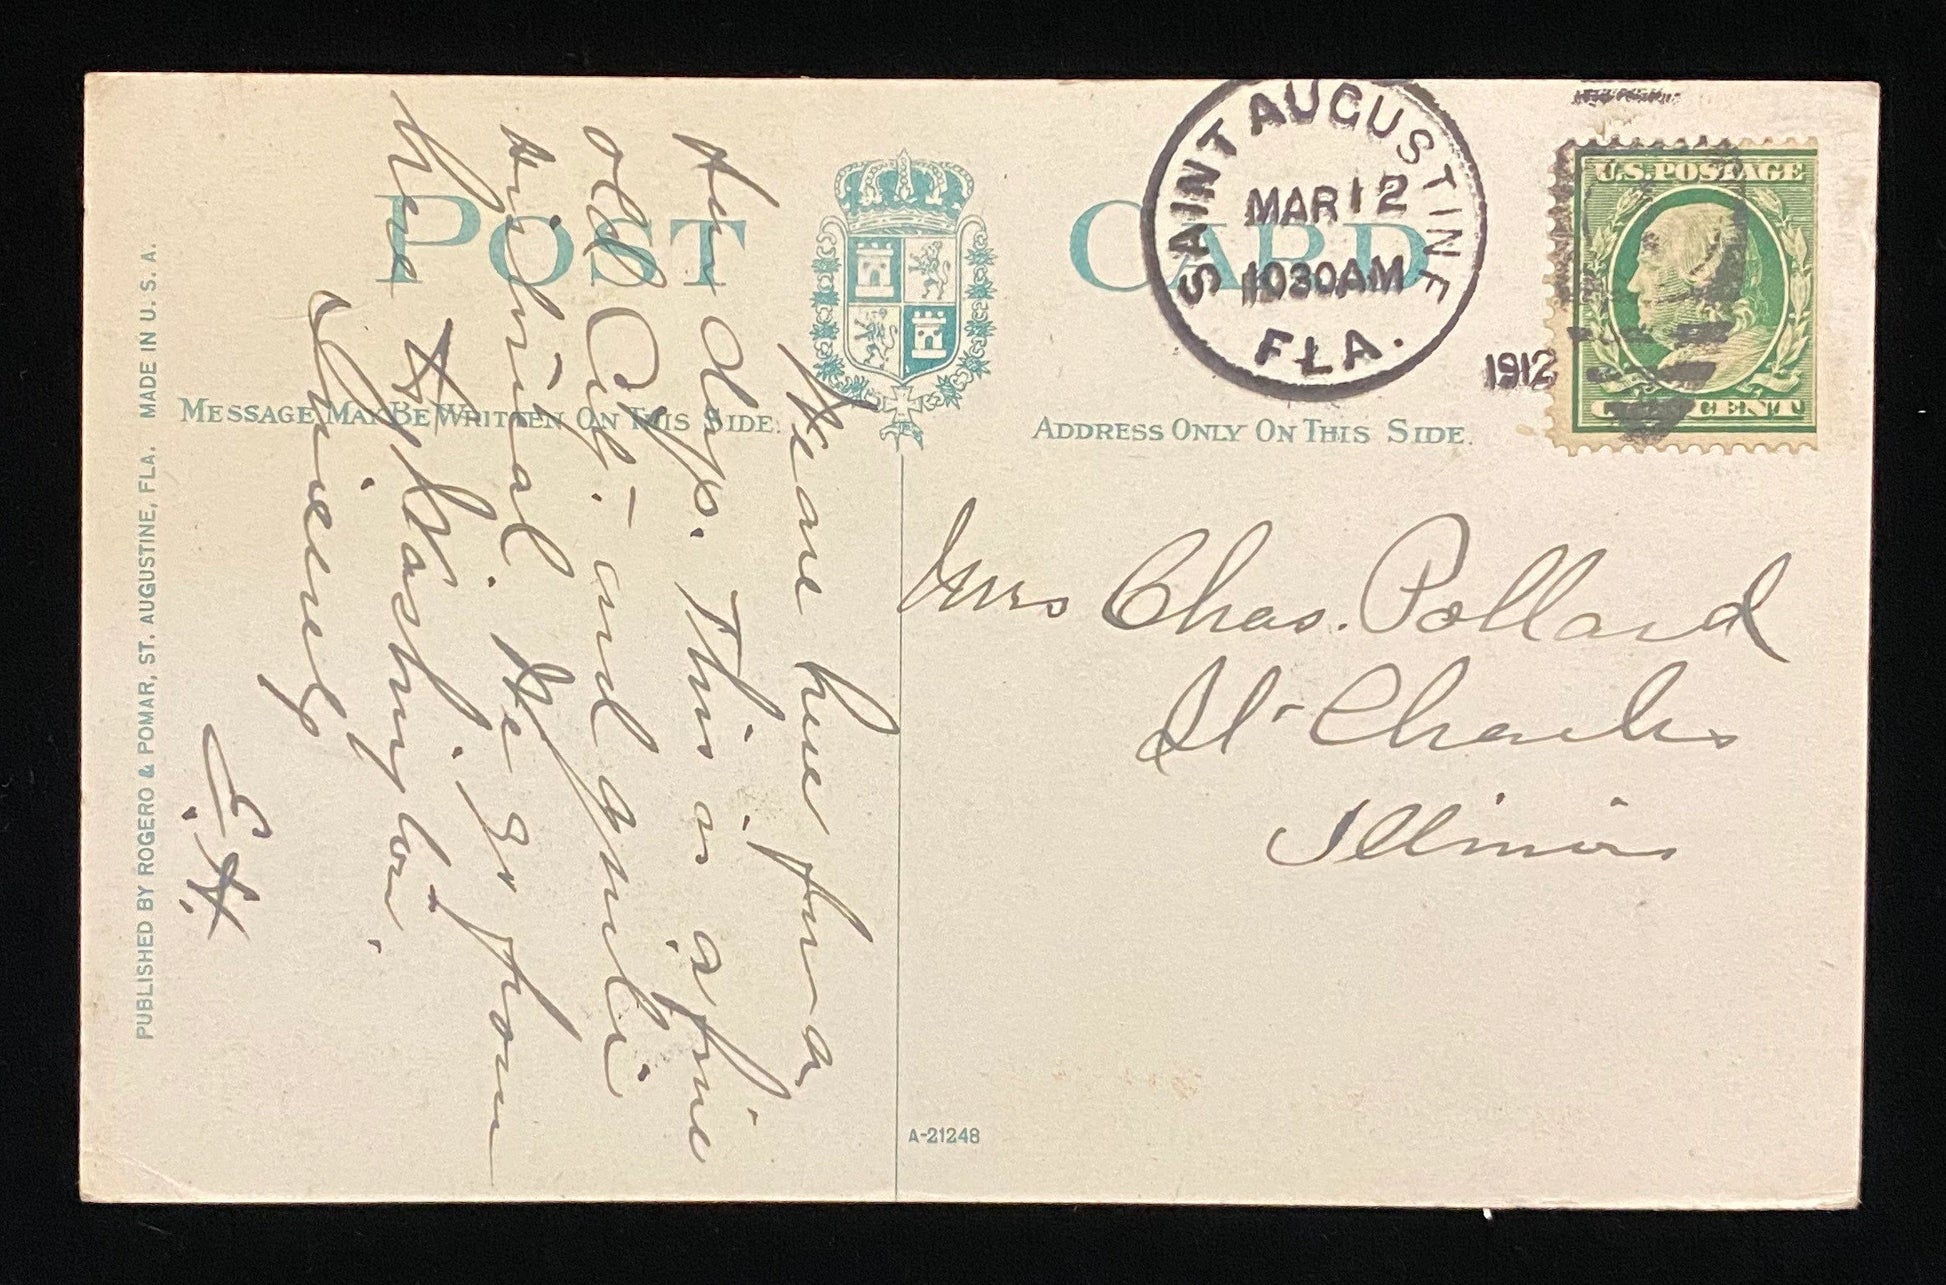 POST CARD
MESSAGE MAY BE WRITTEN ON THIS SIDE.
ADDRESS ONLY ON THIS SIDE.
SAINT AUGUSTINE
MAR 12
1030AM
FLA.
1912
U.S. POSTAGE
CENT
We are here for a
few days. This is a fine
old City - and quite
tropical. We go from
here to Washington.
E.H.
Mrs Chas. Pollard
St Charles
Illinois
A-21248
PUBLISHED BY ROGERO & POMAR, ST. AUGUSTINE, FLA. MADE IN U. S. A.